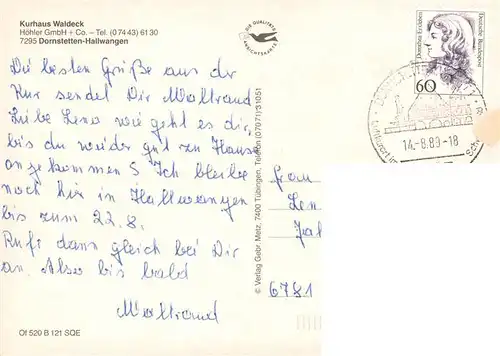 Kurhaus Waldeck
Höhler GmbH + Co. – Tel. (0 74 43) 61 30
7295 Dornstetten-Hallwangen
DIE QUALITÄTS
ANSICHTSKARTE
Die besten Grüße aus dr
Kur sendet Dir Waltraud
Liebe Lena wie geht es dir,
bis du wieder gut zu Hause
angekommen? Ich bleibe
noch hir in Hallwangen
bis zum 22.8.
Ruft dann gleich bei Dir
an. Also bis bald
Waltraud
Of 520 B 121 SQE
© Verlag Gebr. Metz, 7400 Tübingen, Telefon (07071) 31051
Dorothea Erxleben
Deutsche Bundespost
60
14.-8.89-18
Frau
Len
6781